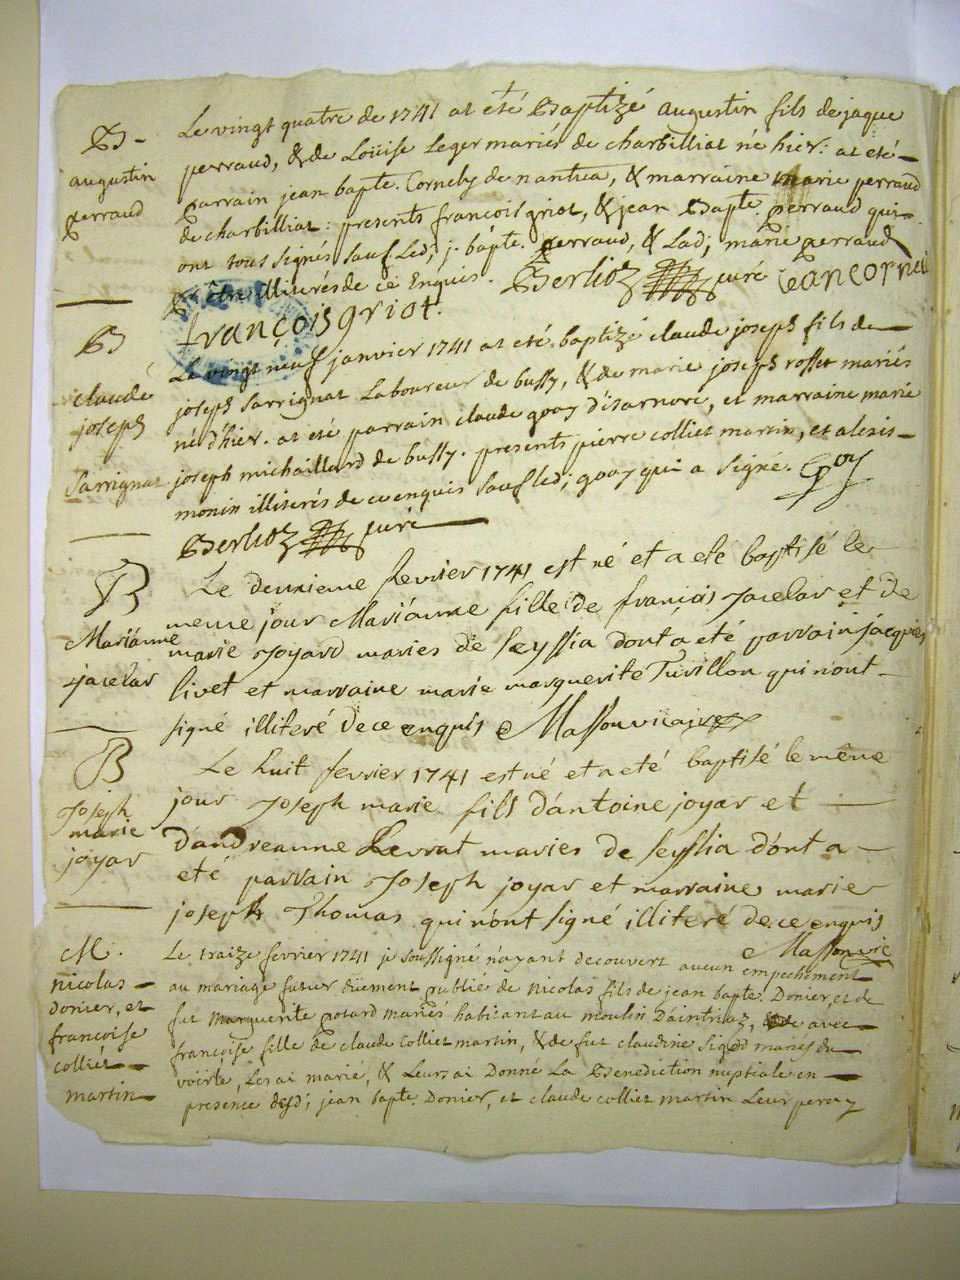 B.
augustin
perraud
Le vingt quatre de 1741 at eté Baptizé augustin fils de jaque
perraud, & de Loüise Leger mariés de charbilliat né hier: at eté
parrain jean bapte. Cornely de nantua, & marraine marie perraud
de charbilliat: presents francois griot, & jean Bapte perraud qui
ont tous signés sauf Led; j. bapte. perraud, & Lad; marie perraud
illiterés de ce Enquis. Berlioz curé jean cornel
françois griot.
B
claude
joseph
Sarrignat
Le vingt neuf janvier 1741 at eté baptizé claude joseph fils de
joseph Sarrignat Laboureur de bussy, & de marie joseph rosset mariés
né d'hier. at eté parrain claude goay d'isarnore, et marraine marie
joseph michaillard de bussy. presents pierre colliet martin, et alexis
monin illiterés de ce enquis sauf led; goay qui a signé. goy
Berlioz curé
B
Mariánne
jacelar
Le deuxieme fevrier 1741 est né et a eté baptisé le
meme jour Mariánne fille de françois Jacelar et de
marie Joyard maries de Seyssia dont a eté parrain jacques
livet et marraine marie marguerite Tuvillon qui n'ont
signé illiteré de ce enquis Masson vicaire
B
Joseph
marie
joyar
Le huit fevrier 1741 est né et a eté baptisé le même
jour Joseph marie fils d'antoine joyar et
d'andreanne Levrat maries de Seyssia dónt a
eté parrain Joseph joyar et marraine marie
joseph Thomas qui n'ont signé illiteré de ce enquis
Masson vic
M.
nicolas
donier, et
francoise
colliet
martin
Le traize fevrier 1741 je soussigné n'ayant decouvert aucun empechement
au mariage futur düement publié de nicolas fils de jean bapte. Donier, et de
fut Marguerite potard mariés habitants au moulin D'aintriaz, avec
francoise fille de claude colliet martin, & de fut claudine mariés du
voirle, Les ai marié, & Leurs ai Donné La Benediction nuptiale en
presence desd; jean bapte. Donier, et claude colliet martin Leur peres